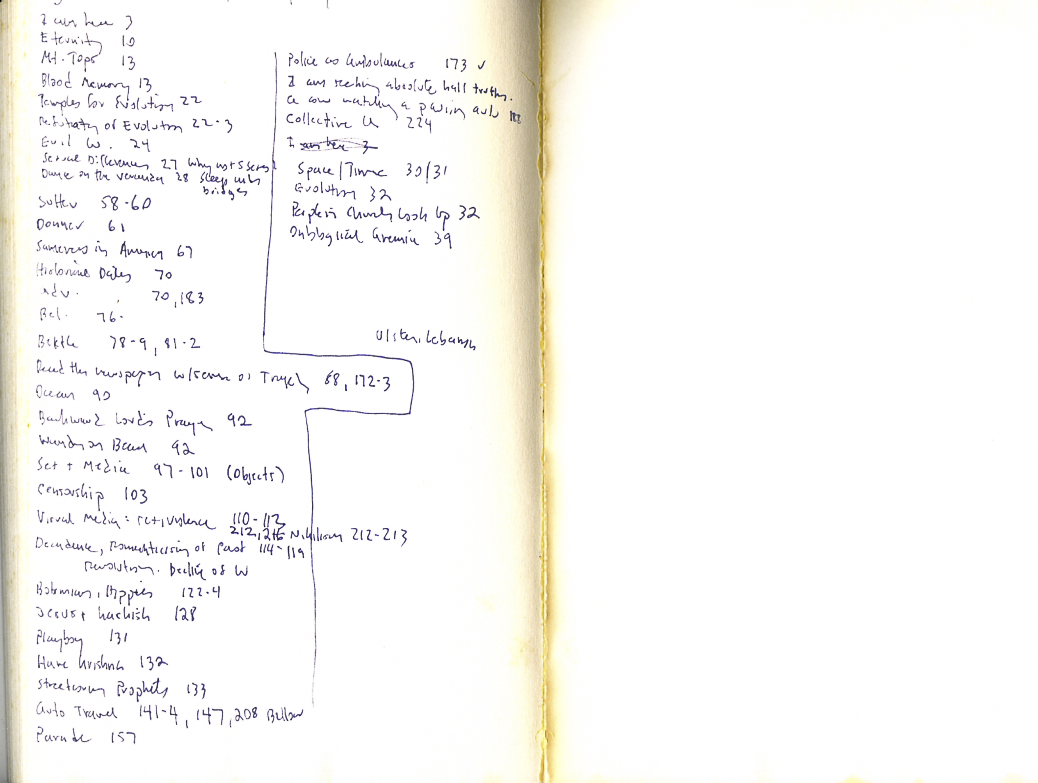 I am here 3
Eternity 10
Mt. Tops 13
Blood Memory 13
Temples for Evolution 22
of Evolution 22-3
Evil W. 24
Sexual Differences 27 Why not 5 sexes?
Dance on the 28 Sleep under
bridges
Sutter 58-60
Donner 61
in America 67
Dates 70
Adv. 70, 183
Bel. 76.
Battle 78-9, 81-2
Read the newspaper w/sense of Tragedy 68, 172-3
Ocean 90
Backward Lord's Prayer 92
on Beach 92
Set + Media 97-101 (Objects)
Censorship 103
Visual Media: sex, violence 110-112
212, 216 Nihilism 212-213
Decadence, Romanticizing of Past 114-119
Revolution. Decline of W
Bohemians, Hippies 122-4
Jesus + hashish 128
Playboy 131
Hare Krishna 132
Streetcorner Prophets 133
Auto Travel 141-4, 147, 208 Bellow
Parade 157
Police as Ambulances 173 ✓
I am seeking absolute half truths.
a cow watching a passing auto
Collective U 224
I am here 3
Space/Time 30/31
Evolution 32
People in Church Look Up 32
39
Ulster, Lebanon